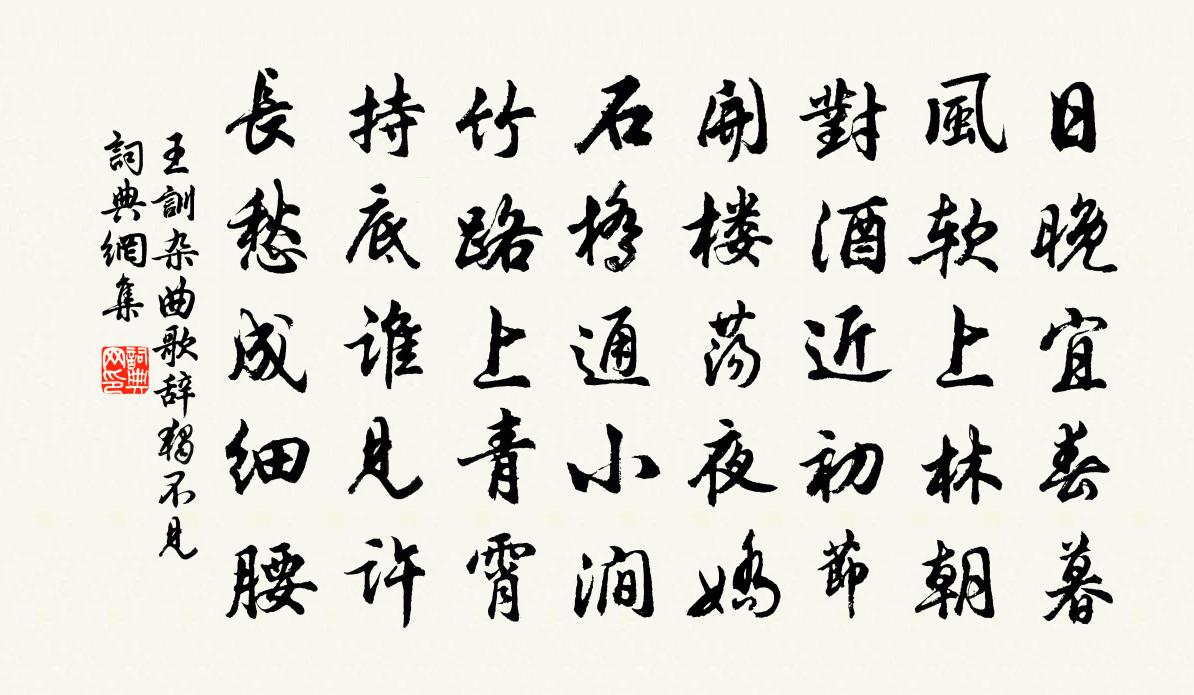 日晚宜春暮
風软上林朝
對酒近初節
開楼荡夜嬌
石橋通小澗
竹路上青霄
持底谁見许
長愁成细腰
王訓杂曲歌辞獨不見
詞典網集
詞典网印